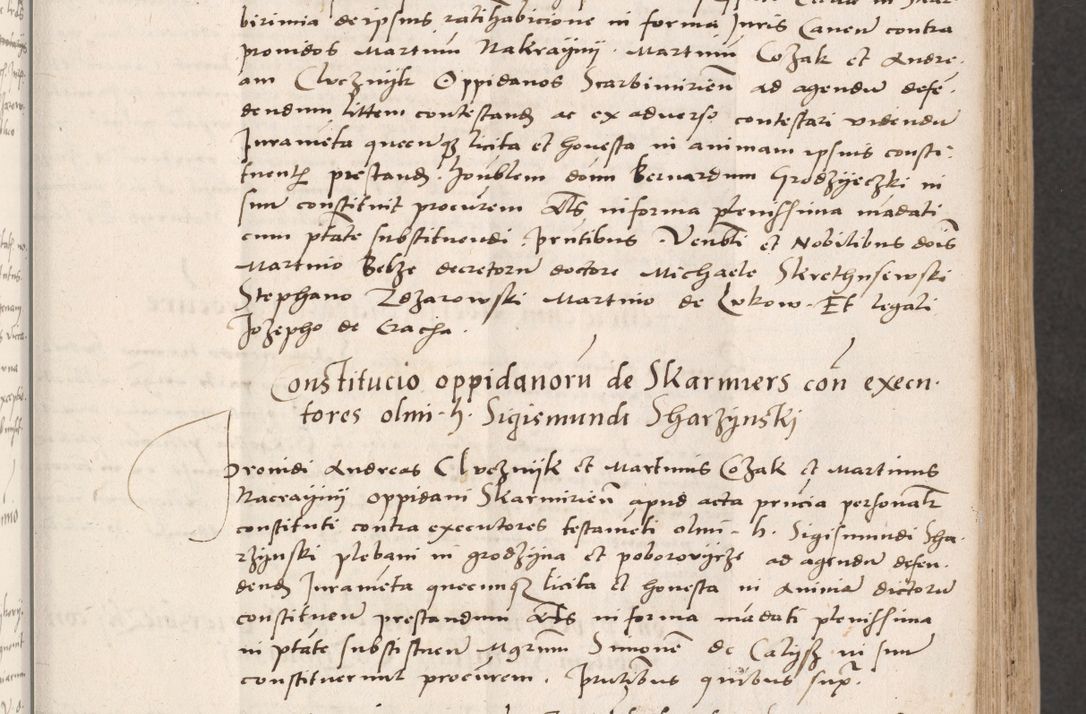 birimia de ipsius ratihabicione in forma Juris Caven contra
providos Martinũ Nakrayny. Martinũ Cozak et Andre-
am Clvcznyk Oppidanos Scarbimirieñ ad agendũ defen-
dendum littem contestand ac ex adverso contestari videndũ
Juramẽta queecunq licita et honesta in animam ipsius consti-
tuent prestand. Honblem doñm Bernardum Grodzyeczki in
suũ constituit procurem Abs in forma plenissima mãdati
cum ptãte substituendi. Pñtibus. Venbli et Nobilibus doĩs
Martino Belze decretorũ doctore Michaele
Stephano Zdzarowski Martino de Lukow. Et legali
Jozepho de Cracha.
Constitucio oppidanorũ de Skarmiers coñ execu-
tores olmi h. Sigismundi Skarzynski
Providi Andreas Clvcznyk et Martinus Cozak et Martinus
Nacrayny oppidani Skarmirieñ apud acta pñcia personalr
constituti contra executores testamẽti olmi h. Sigismundi Ska-
rzynski plebani in grodzyna et poborovycze ad agendũ defen-
dend Juramẽta quecunq licita et honesta in Animã dictorũ
constituen prestandum Abs in forma mãdati plenissima
in ptãte substituen Mgrum Simoneñ de Calysz in suũ
constituerunt procurem. Pñtibus quibus supra.